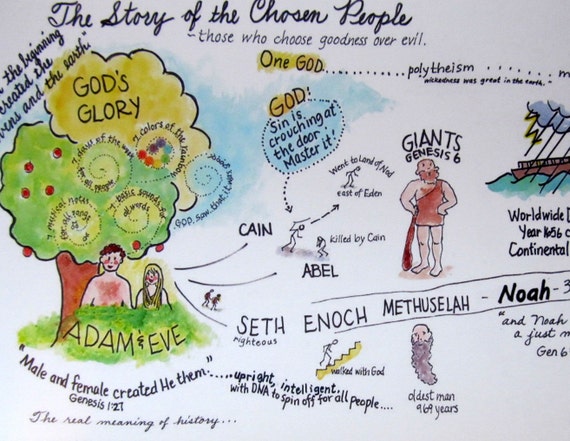 The Story of the Chosen People
~those who choose goodness over evil.
In the beginning
created the
vens and the earth."
One GOD...............polytheism ............m
"wickedness was great in the earth."
GOD'S
GLORY
7 days of the week
for all people
7 colors of the rainbow
7 musical notes
for all songs
7 basic sounds
of words
GOD saw that it was good.
GOD:
Sin is
crouching at
the door.
Master it!
Went to Land of Nod
East of Eden
GIANTS
GENESIS 6
CAIN
killed by Cain
ABEL
Worldwide
Year 1656
Continental
ADAM & EVE
SETH ENOCH METHUSELAH - Noah - 3
righteous
walked with God
oldest man
969 years
"and Noah
a just m
Gen 6
"Male and female created He them."
Genesis 1:27
.....upright, intelligent,
with DNA to spin off for all people....
The real meaning of history...